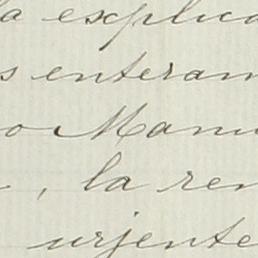 la explica
s enteram
o Manu
, la ren
urjente